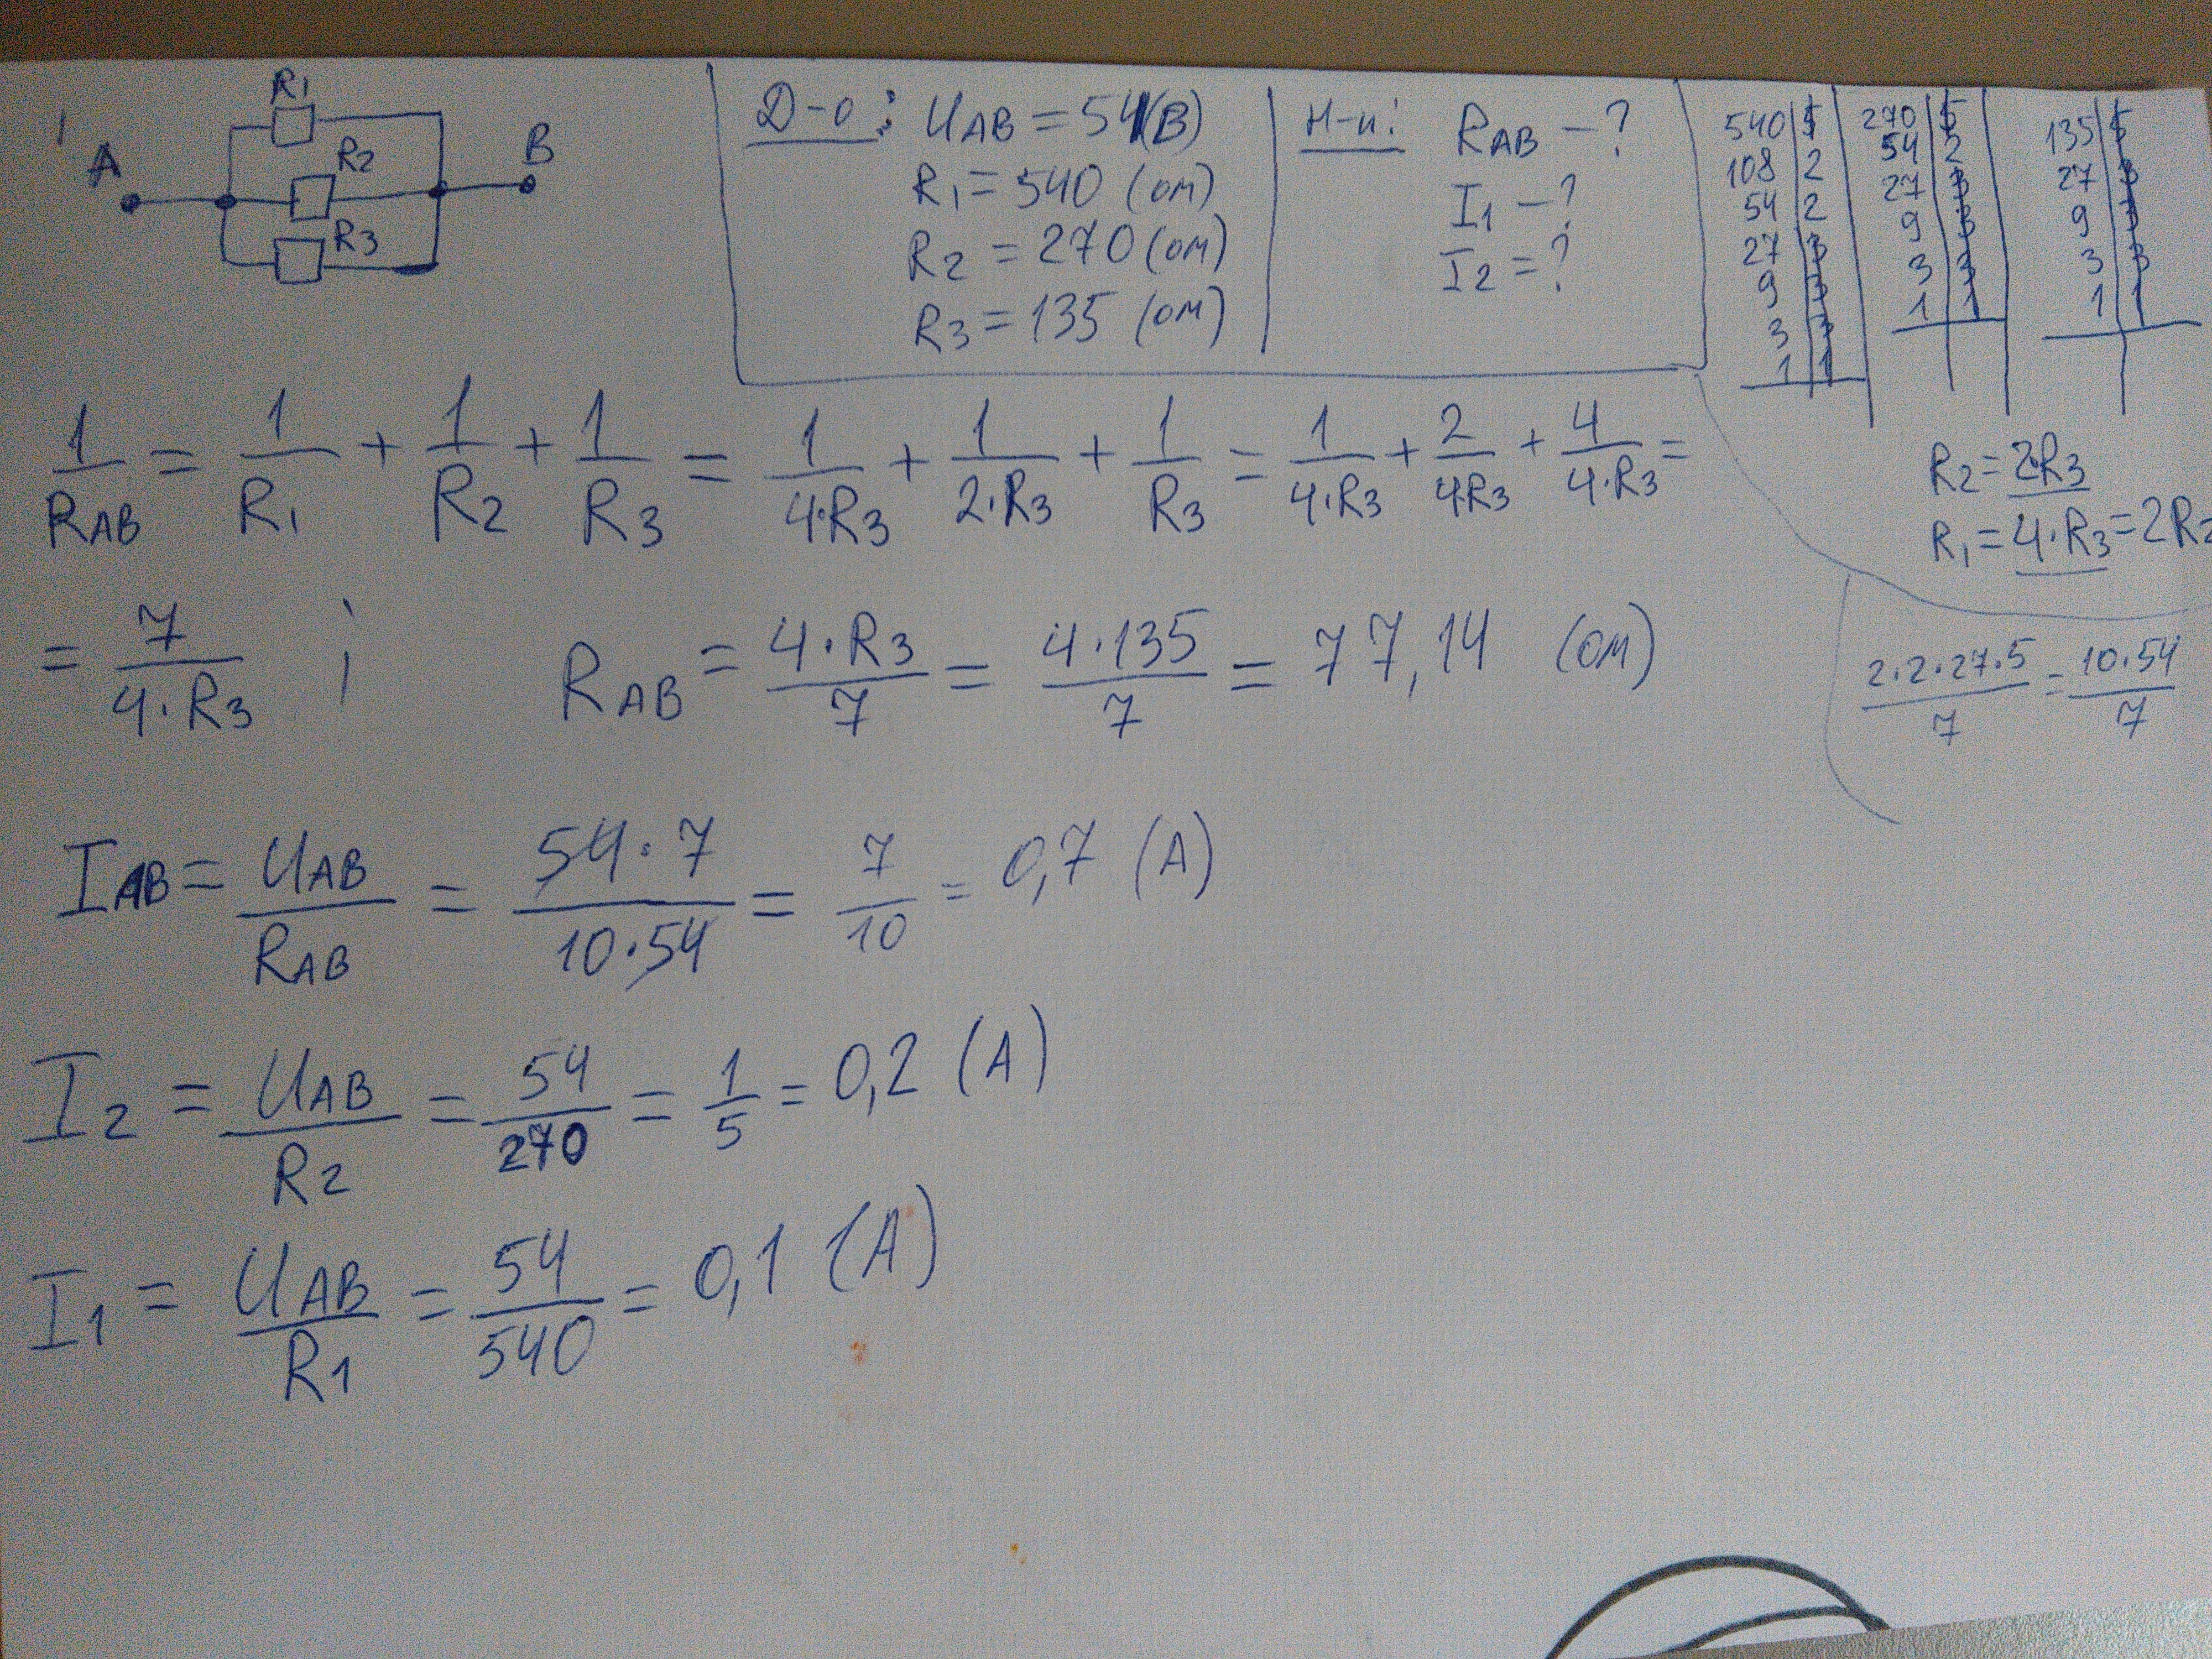 R1
A
R2
B
R3
Д-о: UAB = 54 (В)
R1 = 540 (ом)
R2 = 270 (ом)
R3 = 135 (ом)
Н-и: RAB - ?
I1 - ?
I2 = ?
540 | 5
108 | 2
54 | 2
27 | 3
9 | 3
3 | 3
1 | 1
270 | 5
54 | 2
27 | 3
9 | 3
3 | 3
1 | 1
135 | 5
27 | 3
9 | 3
3 | 3
1 | 1
R2 = 2·R3
R1 = 4·R3 = 2R2
1/RAB = 1/R1 + 1/R2 + 1/R3 = 1/4·R3 + 1/2·R3 + 1/R3 = 1/4·R3 + 2/4R3 + 4/4·R3 =
= 7/4·R3 ; RAB = 4·R3/7 = 4·135/7 = 77,14 (ом)
2·2·27·5/7 = 10·54/7
IAB = UAB/RAB = 54·7/10·54 = 7/10 = 0,7 (А)
I2 = UAB/R2 = 54/270 = 1/5 = 0,2 (А)
I1 = UAB/R1 = 54/540 = 0,1 (А)